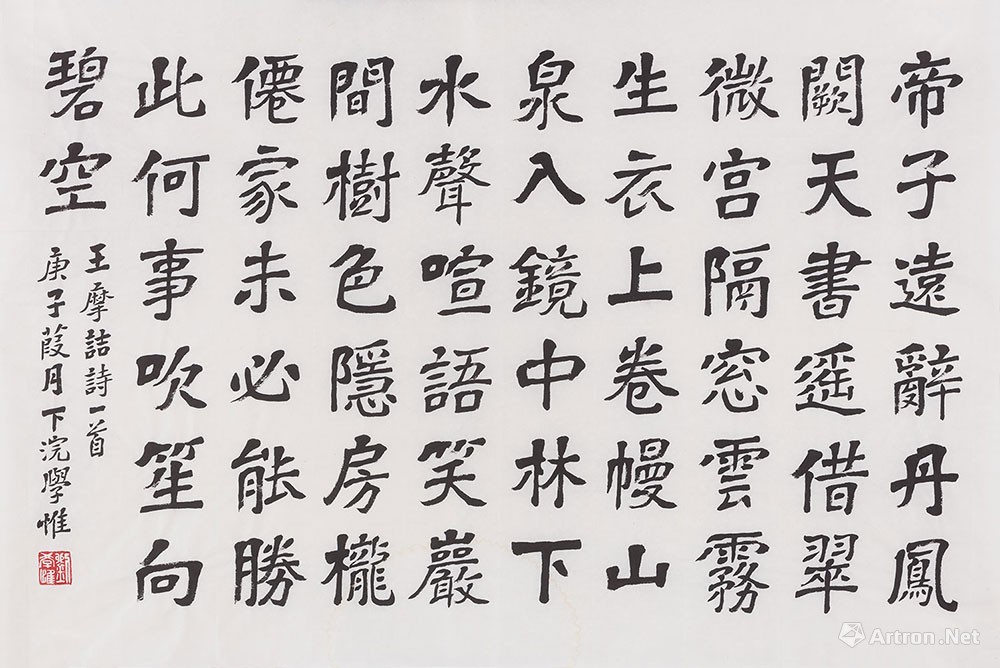 帝子遠辭丹鳳
闕天書遥借翠
微宫隔窓雲霧
生衣上卷幔山
泉入鏡中林下
水聲喧語笑巖
間樹色隱房櫳
僊家未必能勝
此何事吹笙向
碧空
王摩詰詩一首
庚子葭月下浣學惟
Artron.Net